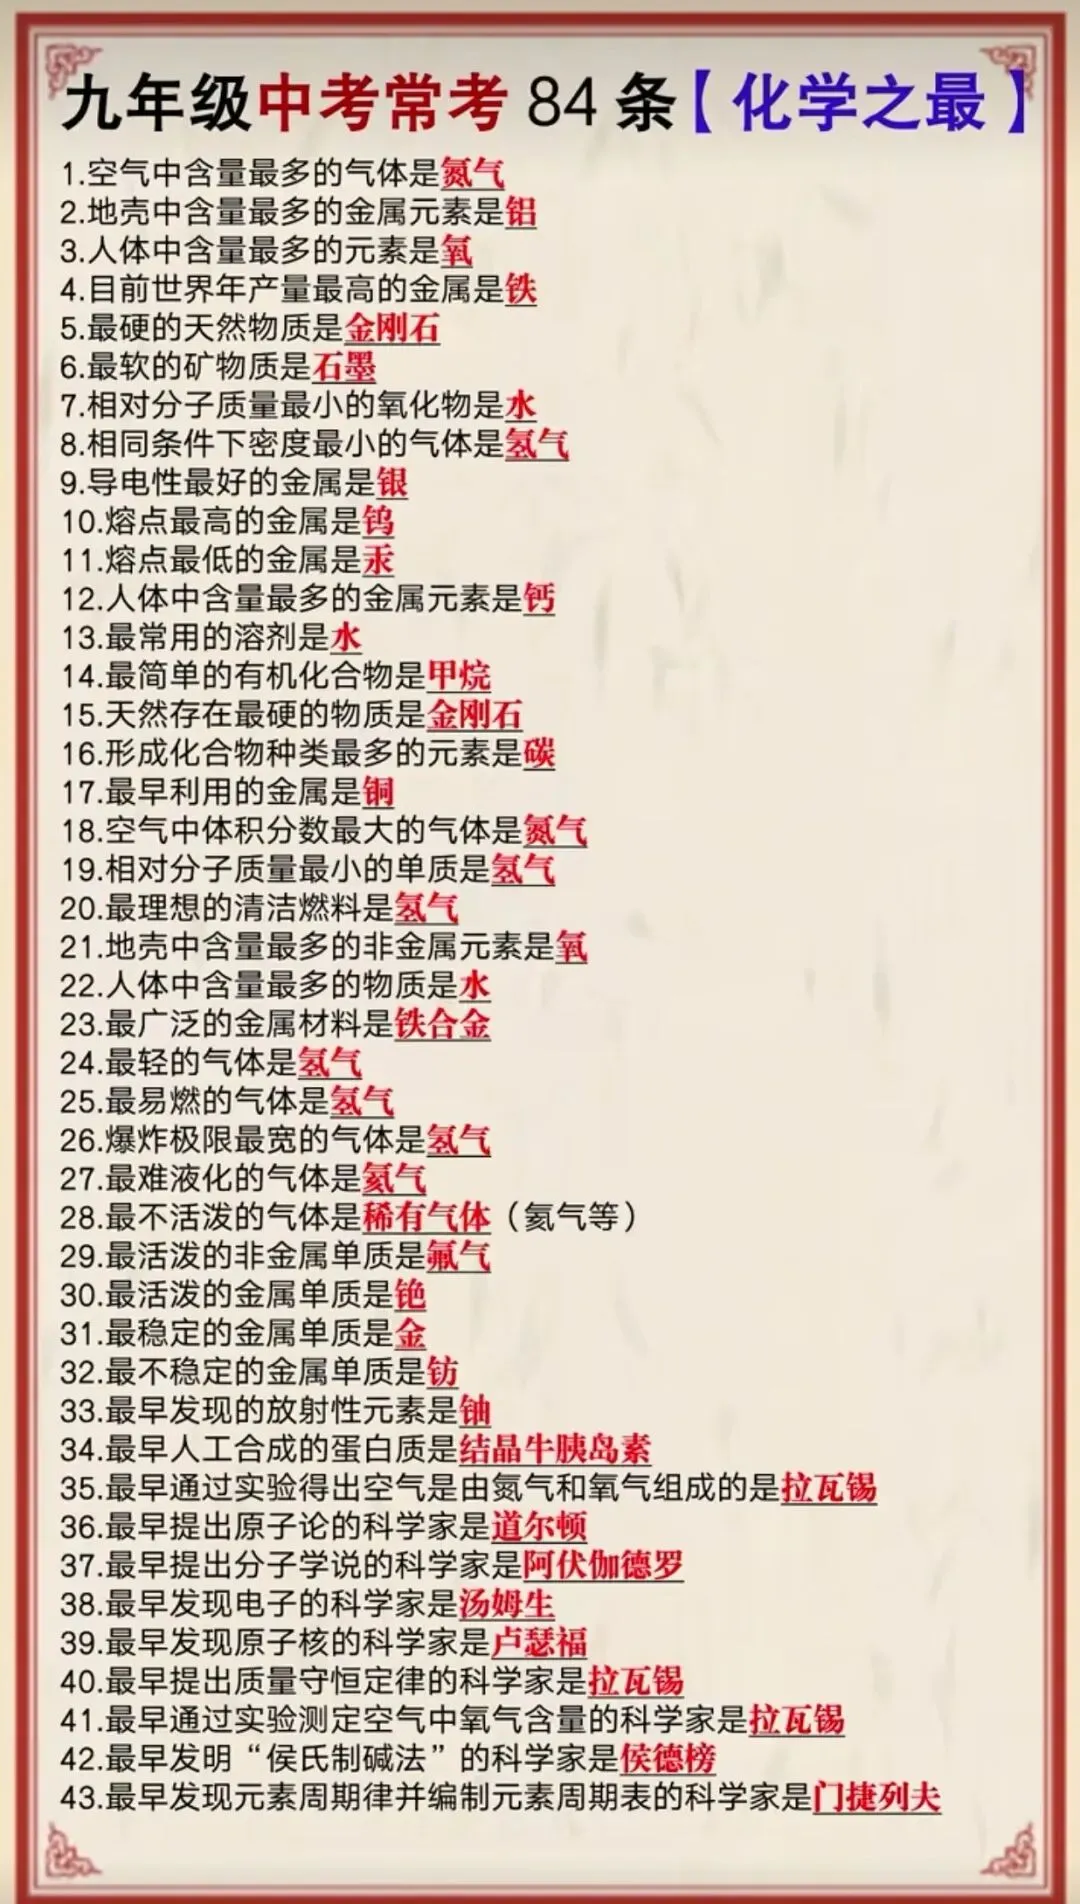 九年级中考常考84条【化学之最】
1.空气中含量最多的气体是氮气
2.地壳中含量最多的金属元素是铝
3.人体中含量最多的元素是氧
4.目前世界年产量最高的金属是铁
5.最硬的天然物质是金刚石
6.最软的矿物质是石墨
7.相对分子质量最小的氧化物是水
8.相同条件下密度最小的气体是氢气
9.导电性最好的金属是银
10.熔点最高的金属是钨
11.熔点最低的金属是汞
12.人体中含量最多的金属元素是钙
13.最常用的溶剂是水
14.最简单的有机化合物是甲烷
15.天然存在最硬的物质是金刚石
16.形成化合物种类最多的元素是碳
17.最早利用的金属是铜
18.空气中体积分数最大的气体是氮气
19.相对分子质量最小的单质是氢气
20.最理想的清洁燃料是氢气
21.地壳中含量最多的非金属元素是氧
22.人体中含量最多的物质是水
23.最广泛的金属材料是铁合金
24.最轻的气体是氢气
25.最易燃的气体是氢气
26.爆炸极限最宽的气体是氢气
27.最难液化的气体是氦气
28.最不活泼的气体是稀有气体（氦气等）
29.最活泼的非金属单质是氟气
30.最活泼的金属单质是铯
31.最稳定的金属单质是金
32.最不稳定的金属单质是钫
33.最早发现的放射性元素是铀
34.最早人工合成的蛋白质是结晶牛胰岛素
35.最早通过实验得出空气是由氮气和氧气组成的是拉瓦锡
36.最早提出原子论的科学家是道尔顿
37.最早提出分子学说的科学家是阿伏伽德罗
38.最早发现电子的科学家是汤姆生
39.最早发现原子核的科学家是卢瑟福
40.最早提出质量守恒定律的科学家是拉瓦锡
41.最早通过实验测定空气中氧气含量的科学家是拉瓦锡
42.最早发明“侯氏制碱法”的科学家是侯德榜
43.最早发现元素周期律并编制元素周期表的科学家是门捷列夫